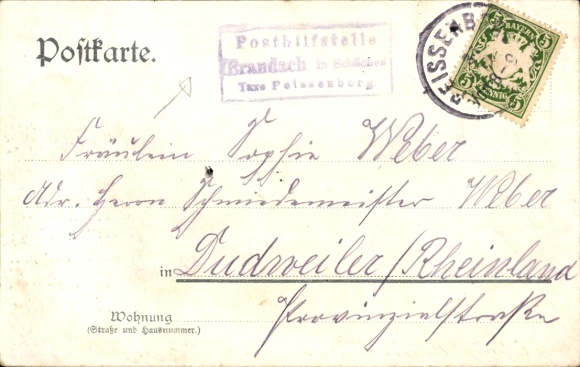 Postkarte.
Posthilfstelle
in
Taxe Peissenberg
PEISSENB
BAYERN
5 5
5 PFENNIG 5
Fräulein Sophie Weber
Adr. Herrn Schmiedemeister Weber
in Dudweiler/Rheinland
Provinzialstraße
Wohnung
(Straße und Hausnummer.)